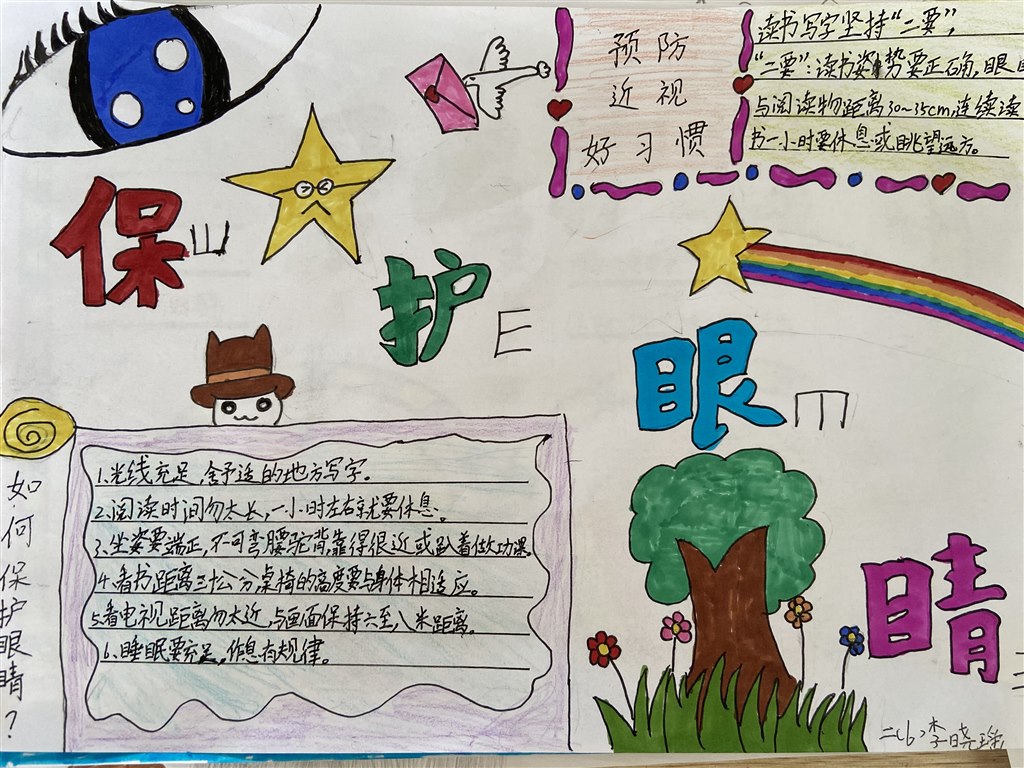 预防
近视
好习惯
读书写字坚持“二要”，
“二要”：读书姿势要正确，眼
与阅读物距离30~35cm，连续读
书一小时要休息或眺望远方。
保
护
E
眼
睛
如何保护眼睛？
1、光线充足，舒适的地方写字。
2、阅读时间勿太长，一小时左右就要休息。
3、坐姿要端正，不可弯腰驼背靠得很近或趴着做功课。
4、看书距离三十公分桌椅的高度要与身体相适应。
5、看电视距离勿太近，与画面保持六至八米距离。
6、睡眠要充足，作息有规律。
二（6）李晓